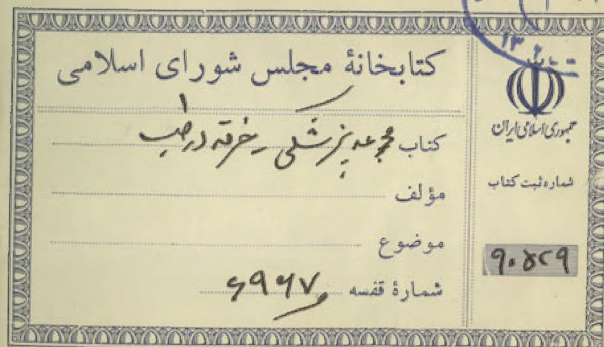 کتابخانهٔ مجلس شورای اسلامی
کتاب مجموعه پزشکی
مؤلف
موضوع
شمارهٔ قفسه ۶۹۶۷
جمهوری اسلامی ایران
شماره ثبت کتاب
۹۰۵۲۹